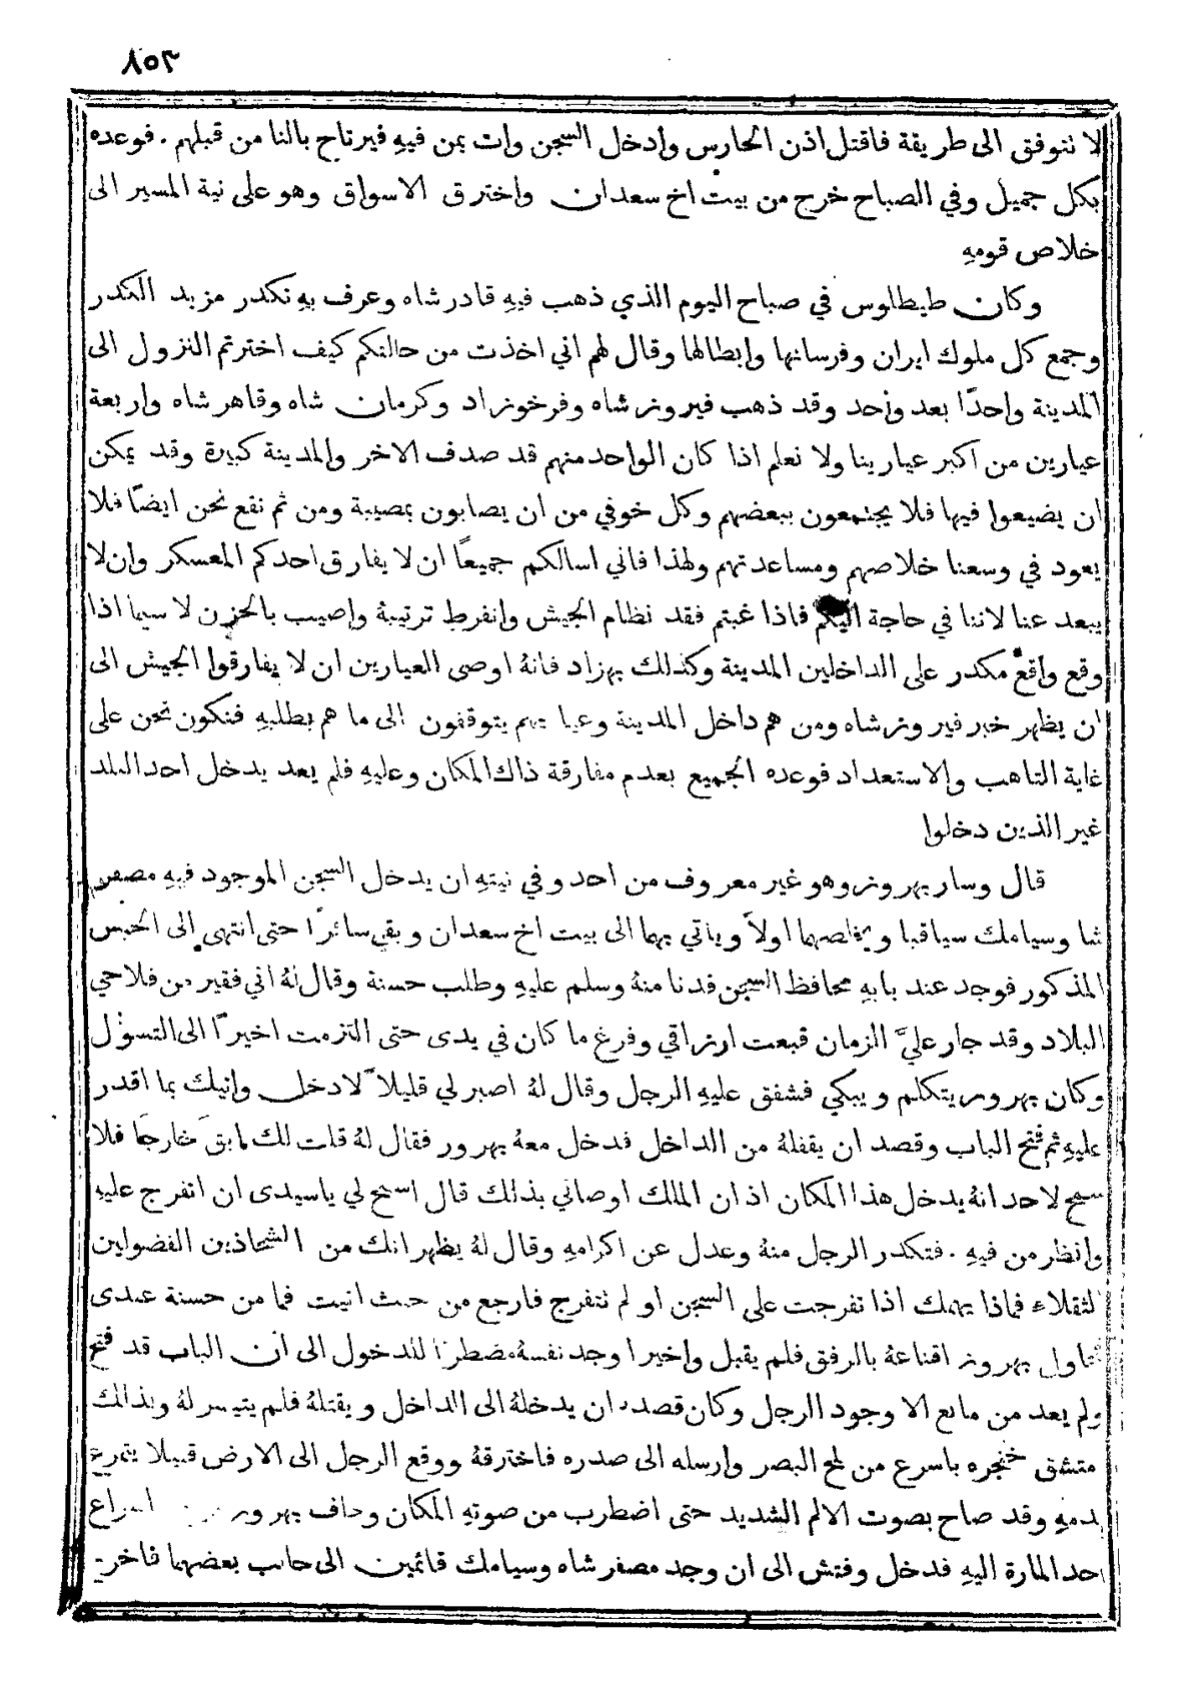 ٨٥٣
لا نتوفق الى طريقة فاقتل اذن الحارس وادخل السجن وات بمن فيهِ فيرتاح بالنا من قبلهم . فوعده
بكل جميل وفي الصباح خرج من بيت اخ سعدان واخترق الاسواق وهو على نية المسير الى
خلاص قومهِ
وكان طيطلوس في صباح اليوم الذي ذهب فيهِ قادر شاه وعرف بهِ تكدر مزيد الكدر
وجمع كل ملوك ايران وفرسانها وابطالها وقال لهم اني اخذت من حالتكم كيف اخترتم النزول الى
المدينة واحدًا بعد واحد وقد ذهب فيروز شاه وفرخوزاد وكرمان شاه وقاهر شاه واربعة
عيارين من اكبر عيارينا ولا نعلم اذا كان الواحد منهم قد صدف الاخر والمدينة كبيرة وقد يمكن
ان يضيعوا فيها فلا يجتمعون ببعضهم وكل خوفي من ان يصابون بمصيبة ومن ثم نقع نحن ايضًا فلا
يعود في وسعنا خلاصهم ومساعدتهم ولهذا فاني اسالكم جميعًا ان لا يفارق احدكم المعسكر وان لا
يبعد عنا لاننا في حاجة اليكم فاذا غبتم فقد نظام الجيش وانفرط ترتيبهُ واصيب بالحزن لا سيما اذا
وقع واقع مكدر على الداخلين المدينة وكذلك بهزاد فانهُ اوصى العيارين ان لا يفارقوا الجيش الى
ان يظهر خبر فيروزشاه ومن هم داخل المدينة وعما بهم يتوقفون الى ما هم بطلبهِ فنكون نحن على
غاية التاهب والاستعداد فوعده الجميع بعدم مفارقة ذاك المكان وعليهِ فلم يعد يدخل احد البلد
غير الذين دخلوا
قال وسار بهروز وهو غير معروف من احد وفي نيتهِ ان يدخل السجن الموجود فيهِ مصفر
شا وسيامك سياقبا ويخلصهما اولاً وياتي بهما الى بيت اخ سعدان وبقي سائرًا حتى انتهى الى الحبس
المذكور فوجد عند بابهِ محافظ السجن فدنا منهُ وسلم عليهِ وطلب حسنة وقال لهُ اني فقير من فلاحي
البلاد وقد جار عليَّ الزمان قبعت ارزاقي وفرغ ما كان في يدى حتى التزمت اخيرًا الى التسوُل
وكان بهروز يتكلم ويبكي فشفق عليهِ الرجل وقال لهُ اصبر لي قليلاً لادخل واتيك بما اقدر
عليهِ ثم فتح الباب وقصد ان يقفلهُ من الداخل فدخل معهُ بهرور فقال لهُ قلت لك ابقَ خارجًا فلا
سمح لاحد انهُ يدخل هذا المكان اذ ان الملك اوصاني بذلك قال اسمح لي ياسيدى ان اتفرج عليهِ
وانظر من فيهِ . فتكدر الرجل منهُ وعدل عن اكرامهِ وقال لهُ يظهر انك من الشحاذين الفضولين
الثقلاء فماذا يهمك اذا تفرجت على السجن او لم تتفرج فارجع من حيث اتيت فما من حسنة عندى
فحاول بهروز اقناعهُ بالرفق فلم يقبل واخيرا وجد نفسهُ مضطرًا للدخول الى ان الباب قد فتح
ولم يعد من مانع الا وجود الرجل وكان قصده ان يدخلهُ الى الداخل ويقتلهُ فلم يتيسر لهُ وبذالك
متشق خنجره باسرع من لمح البصر وارسله الى صدره فاخترقهُ ووقع الرجل الى الارض قبيلا يتمرغ
بدمهِ وقد صاح بصوت الالم الشديد حتى اضطرب من صوتهِ المكان وخاف بهرور من
احد المارة اليهِ فدخل وفتش الى ان وجد مصفر شاه وسيامك قائمين الى جانب بعضهما